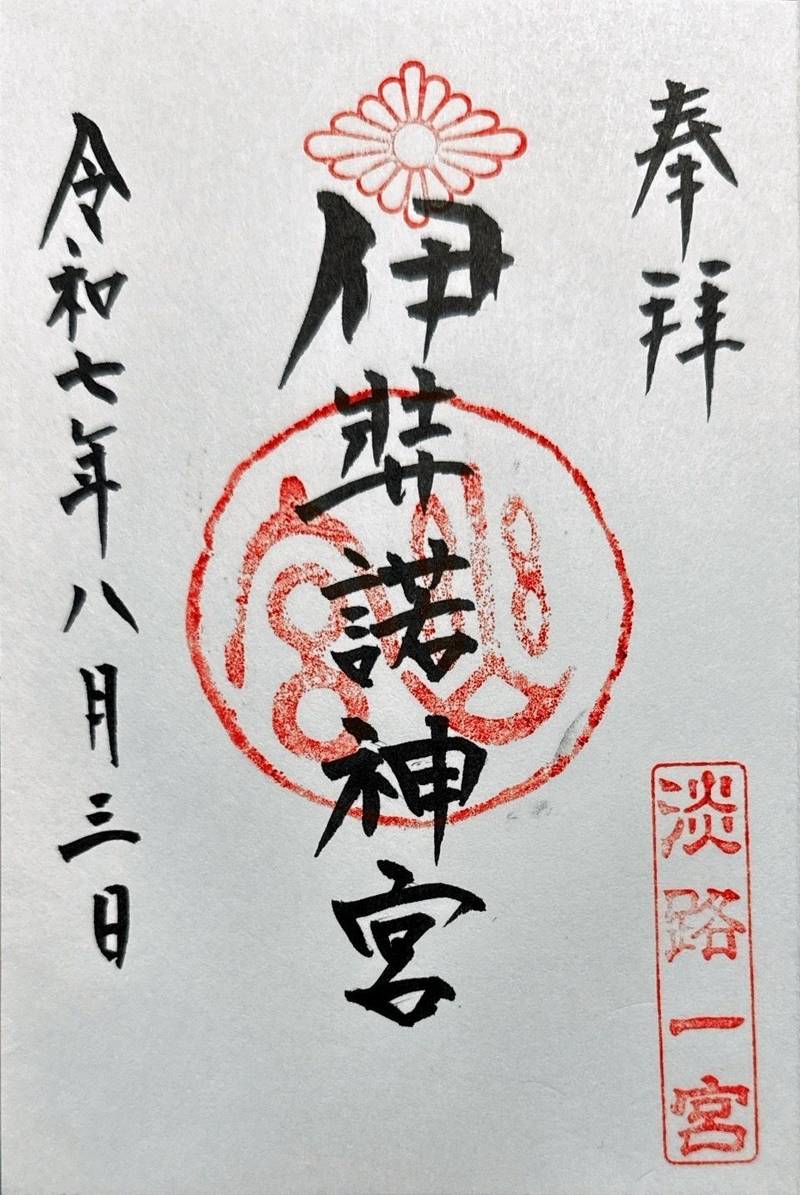 奉拝
淡路一宮
伊弉諾神宮
令和七年八月三日